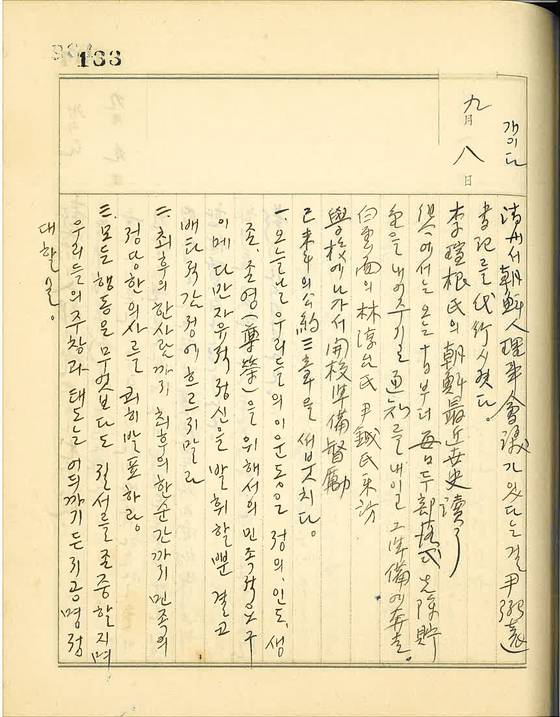 166
개이다
九月 八日
淸州서 朝鮮人理事會議가 있다는걸 尹弼遠
書記를 代行시켰다.
李瑄根氏의 朝鮮最近世史 讀了
에서는 오는 十日부터 每日 두 部落式 先除貯
金을 내여주기로 通知를 내이고 그 準備에 奔走.
白雲面의 林淳台氏 尹鉞氏 來訪
學校에 나가서 開校準備 督勵
己未年의 公約三章을 써붓치다.
一. 오늘날 우리들의 이 운동은 정의, 인도, 생
존, 존영(尊榮)을 위해서의 민족적요구
이메 다만 자유적정신을 발휘할뿐 결코
배타적감정에 흐르지말라
二. 최후의 한사람까지 최후의 한순간까지 민족의
정당한의사를 쾌히발표하라.
三. 모든 행동을 무엇보다도 질서를 존중할지며
우리들의 주창과 태도는 어듸까지든지 공명정
대할 것.